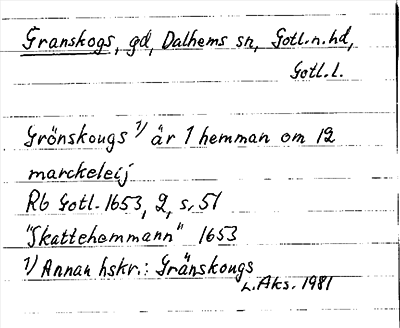 Granskogs, gd, Dalhems sn, Gotl. n. hd,
Gotl. l.
Grönskougs 1) är 1 hemman om 12
marckeleij
Rb Gotl. 1653, 2, s. 51
"Skattehemmann" 1653
1) Annan hskr.: Gränskougs
L. Aks. 1981